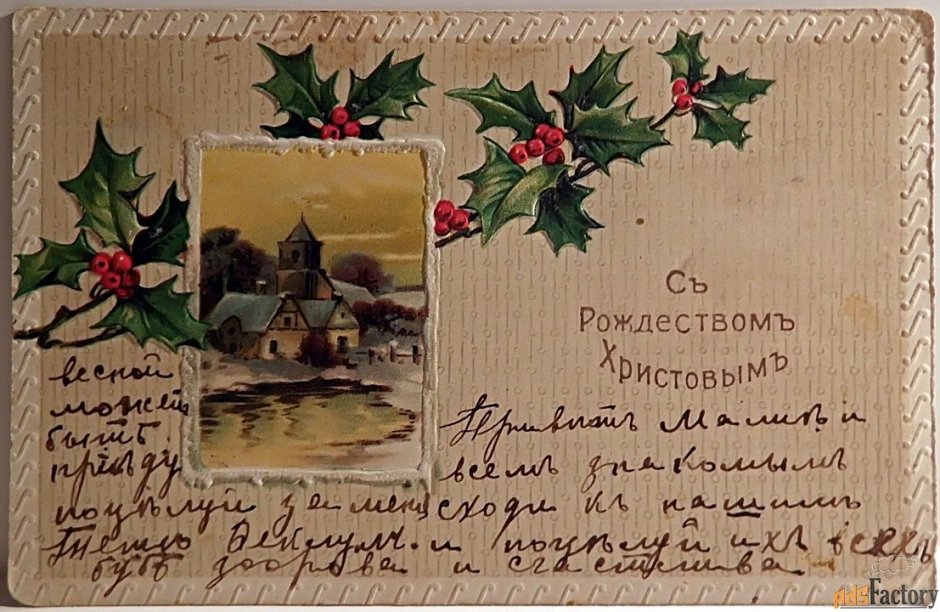 Съ
Рождествомъ
Христовымъ
весной
может
быть
приѣду
Привѣтъ Малинѣ и
всемъ знакомымъ
поцѣлуй за меня сходи къ нашимъ
и поцѣлуй ихъ всехъ
будь здорова и счастлива
AdsFactory